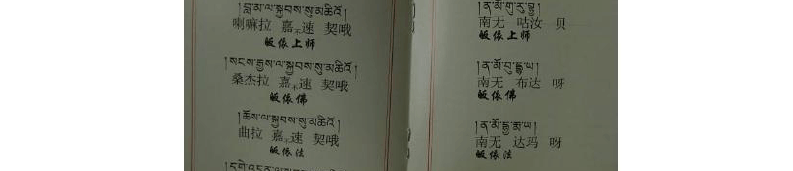 །བླ་མ་ལ་སྐྱབས་སུ་མཆིའོ་།
喇嘛拉 嘉不速 契哦
皈依上师
།སངས་རྒྱས་ལ་སྐྱབས་སུ་མཆིའོ་།
桑杰拉 嘉不速 契哦
皈依佛
།ཆོས་ལ་སྐྱབས་སུ་མཆིའོ་།
曲拉 嘉不速 契哦
皈依法
།ན་མོ་གུ་རུ་བྷྱཿ།
南无 咕汝 贝
皈依上师
།ན་མོ་བུ་དྡྷ་ཡ།
南无 布达 呀
皈依佛
།ན་མོ་དྷརྨཱ་ཡ།
南无 达玛 呀
皈依法